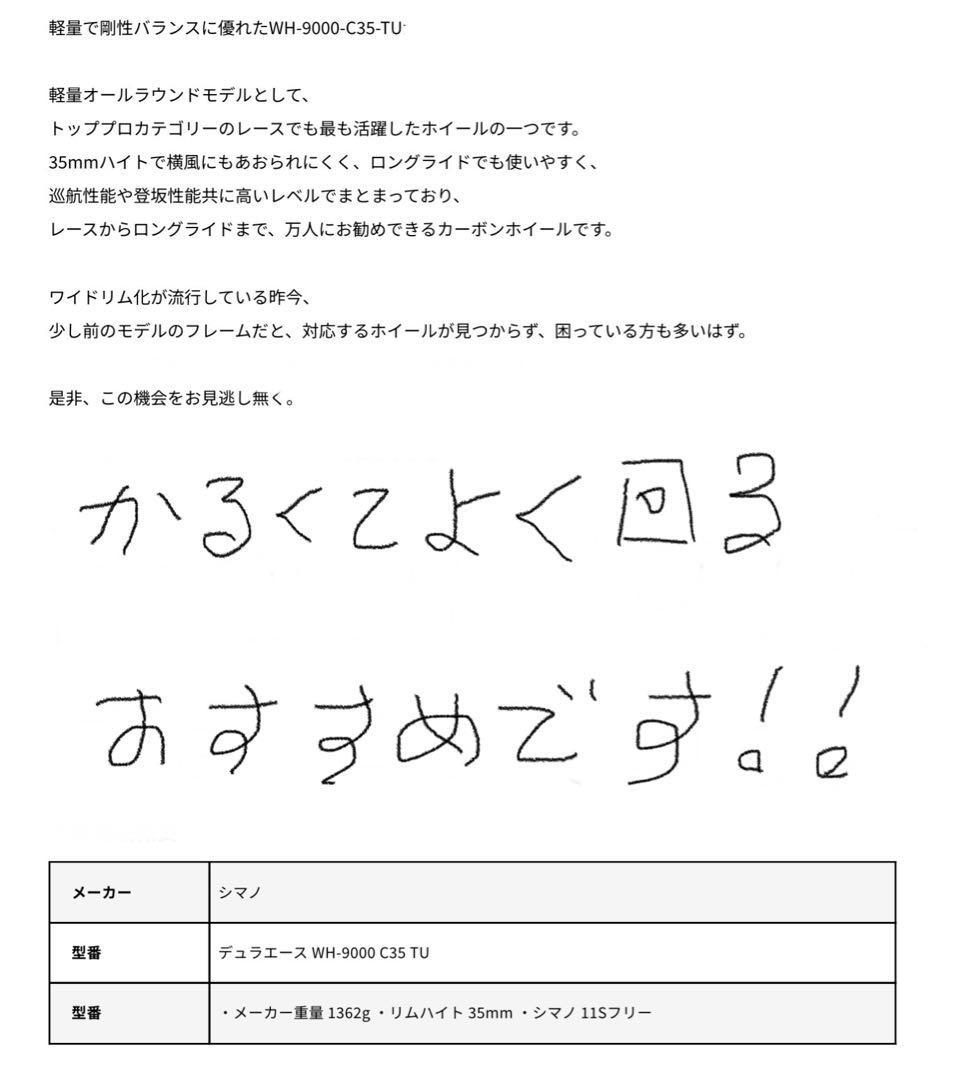 軽量で剛性バランスに優れたWH-9000-C35-TU
軽量オールラウンドモデルとして、
トッププロカテゴリーのレースでも最も活躍したホイールの一つです。
35mmハイトで横風にもあおられにくく、ロングライドでも使いやすく、
巡航性能や登坂性能共に高いレベルでまとまっており、
レースからロングライドまで、万人にお勧めできるカーボンホイールです。
ワイドリム化が流行している昨今、
少し前のモデルのフレームだと、対応するホイールが見つからず、困っている方も多いはず。
是非、この機会をお見逃し無く。
かるくてよく回る
おすすめです！！
メーカー シマノ
型番 デュラエース WH-9000 C35 TU
型番 ・メーカー重量 1362g ・リムハイト 35mm ・シマノ 11Sフリー